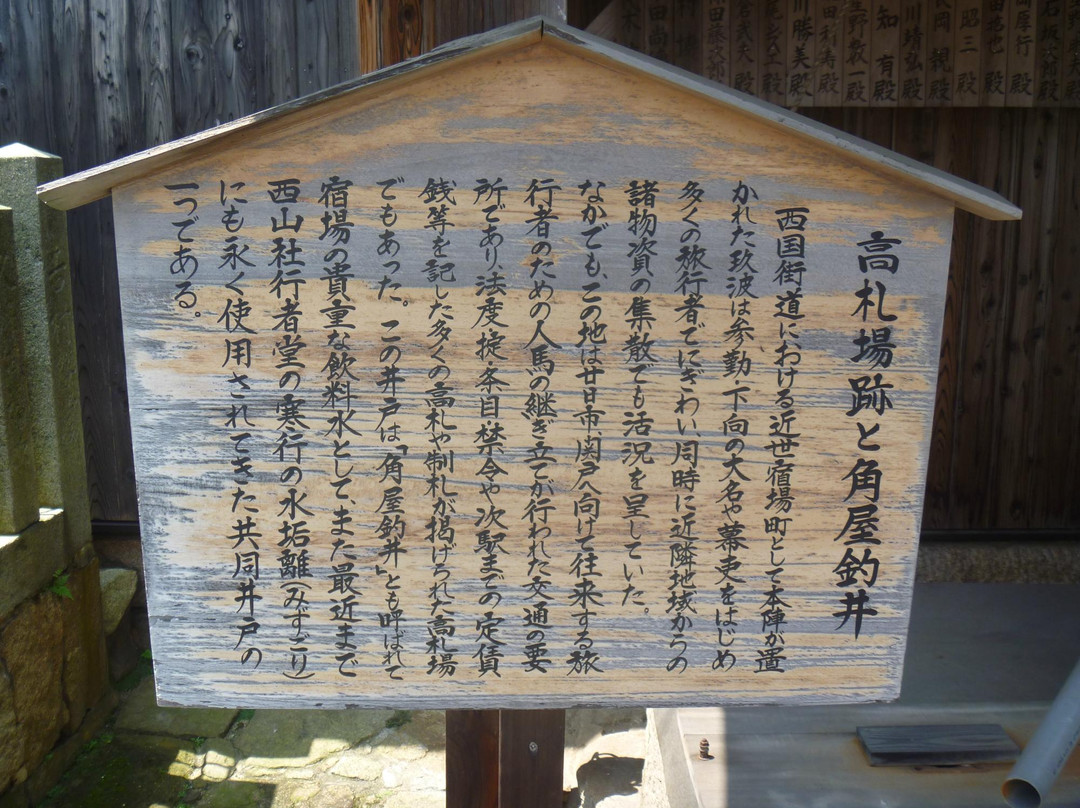 高札場跡と角屋釣井
西国街道における近世宿場町として本陣が置
かれた玖波は参勤、下向の大名や幕吏をはじめ
多くの旅行者でにぎわい、同時に近隣地域からの
諸物資の集散でも活況を呈していた。
なかでも、この地は廿日市、関戸へ向けて往来する旅
行者のための人馬の継ぎ立てが行われた交通の要
所であり、法度、掟、条目、禁令や次駅までの定賃
銭等を記した多くの高札や制札が掲げられた高札場
でもあった。この井戸は「角屋釣井」とも呼ばれて
宿場の貴重な飲料水として、また最近まで
西山社行者堂の寒行の水垢離(みずごり)
にも永く使用されてきた共同井戸の
一つである。
勝美殿
知有殿
川晴弘殿
岡親殿
昭三殿
厚行殿